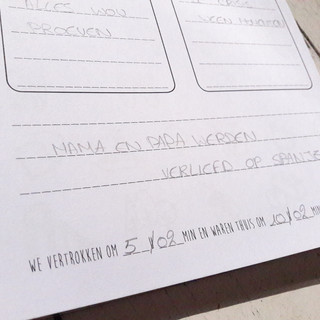 ALLES WOU
PROEVEN
MAMA EN PAPA WERDEN
VERLIEFD OP SPANJE
WE VERTROKKEN OM 5 1/02 MIN EN WAREN THUIS OM 10 1/02 MIN